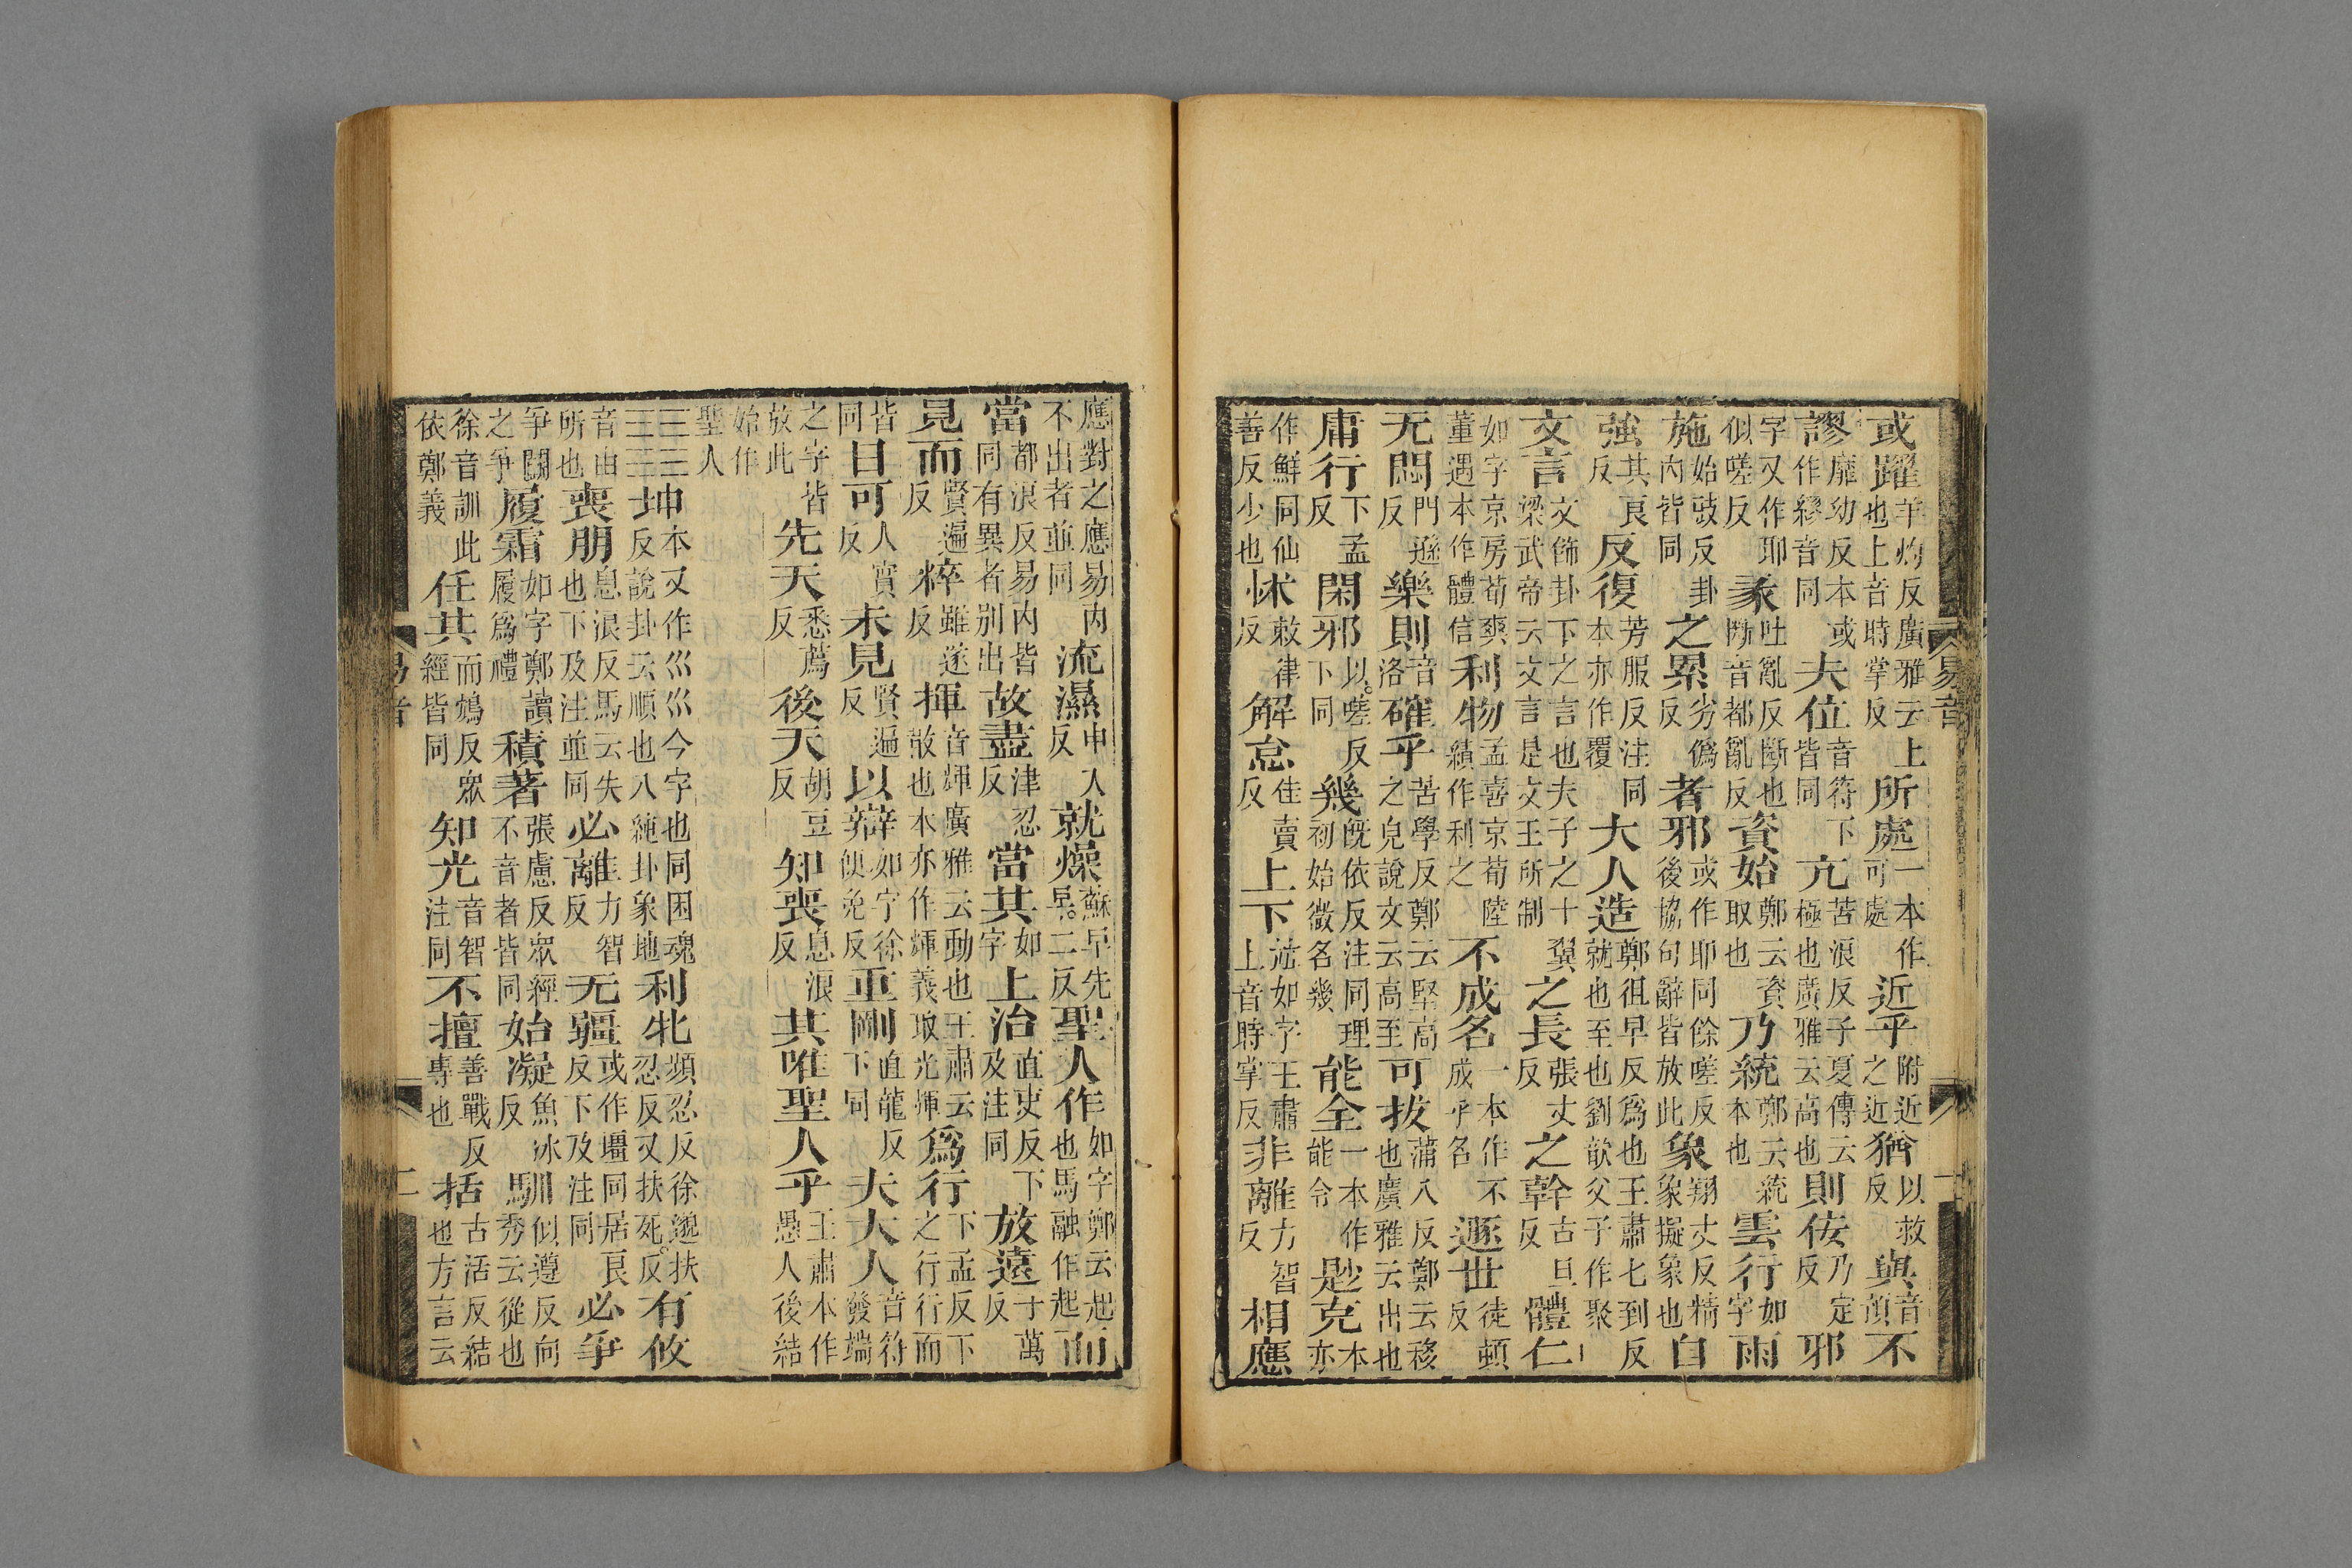 或躍羊灼反廣雅云上也上音時掌反所處一本作可處近乎附近之近猶以救反與音預不
謬靡幼反本或作繆音同夫位音符下皆同亢苦浪反子夏傳云極也廣雅云高也則佞乃定反邪
字又作耶似嗟反彖吐亂反斷也斷音都亂反資始鄭云資取也乃統鄭云統本也雲行如字雨
施始豉反卦内皆同之累劣僞反者邪或作耶同餘嗟反後協句辭皆放此象翔丈反精象擬象也自
強其良反反復芳服反注同本亦作覆大人造鄭徂早反爲也王肅七到反就也至也劉歆父子作聚
文言文飾卦下之言也夫子之十翼梁武帝云文言是文王所制之長張丈反之幹古旦反體仁
如字京房荀爽董遇本作體信利物孟喜京荀陸績作利之不成名一本作不成乎名遯世徒頓反
无悶門遜反樂則音洛確乎苦學反鄭云堅高之皃說文云高至可拔蒲八反鄭云移也廣雅云出也
庸行下孟反閑邪以嗟反下同幾旣依反注同理初始微名幾能全一本作能令尟克本亦
作鮮同仙善反少也怵敕律反解怠佳賣反上下並如字王肅上音時掌反非離力智反相應
易音
一
應對之應易内不出者並同流濕申入反就燥蘇早先皁二反聖人作如字鄭云起也馬融作起而
當都浪反易内皆同有異者別出故盡津忍反當其如字上治直吏反下及注同放遠于萬反
見而賢遍反粹雖遂反揮音輝廣雅云動也王肅云散也本亦作輝義取光揮爲行下孟反下之行行而
皆同日可人實反未見賢遍反以辯如字徐便免反重剛直龍反下同夫大人音符發端
之字皆放此先天悉薦反後天胡豆反知喪息浪反其唯聖人乎王肅本作愚人後結
始作聖人
☷坤本又作巛巛今字也同困魂反說卦云順也八純卦象地利牝頻忍反徐邈扶忍反又扶死反有攸
音由所也喪朋息浪反馬云失也下及注並同必離力智反无疆或作壃同居良反下及注同必爭
爭鬭之爭履霜如字鄭讀履爲禮積著張慮反衆經不音者皆同始凝魚冰反馴似遵反向秀云從也
徐音訓此依鄭義任其而鴆反衆經皆同知光音智注同不擅善戰反專也括古活反結也方言云
易音
二